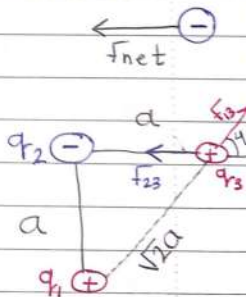 −
Fnet
a
F13
q2 − F23 + 4
q3
a
√2a
q1 +